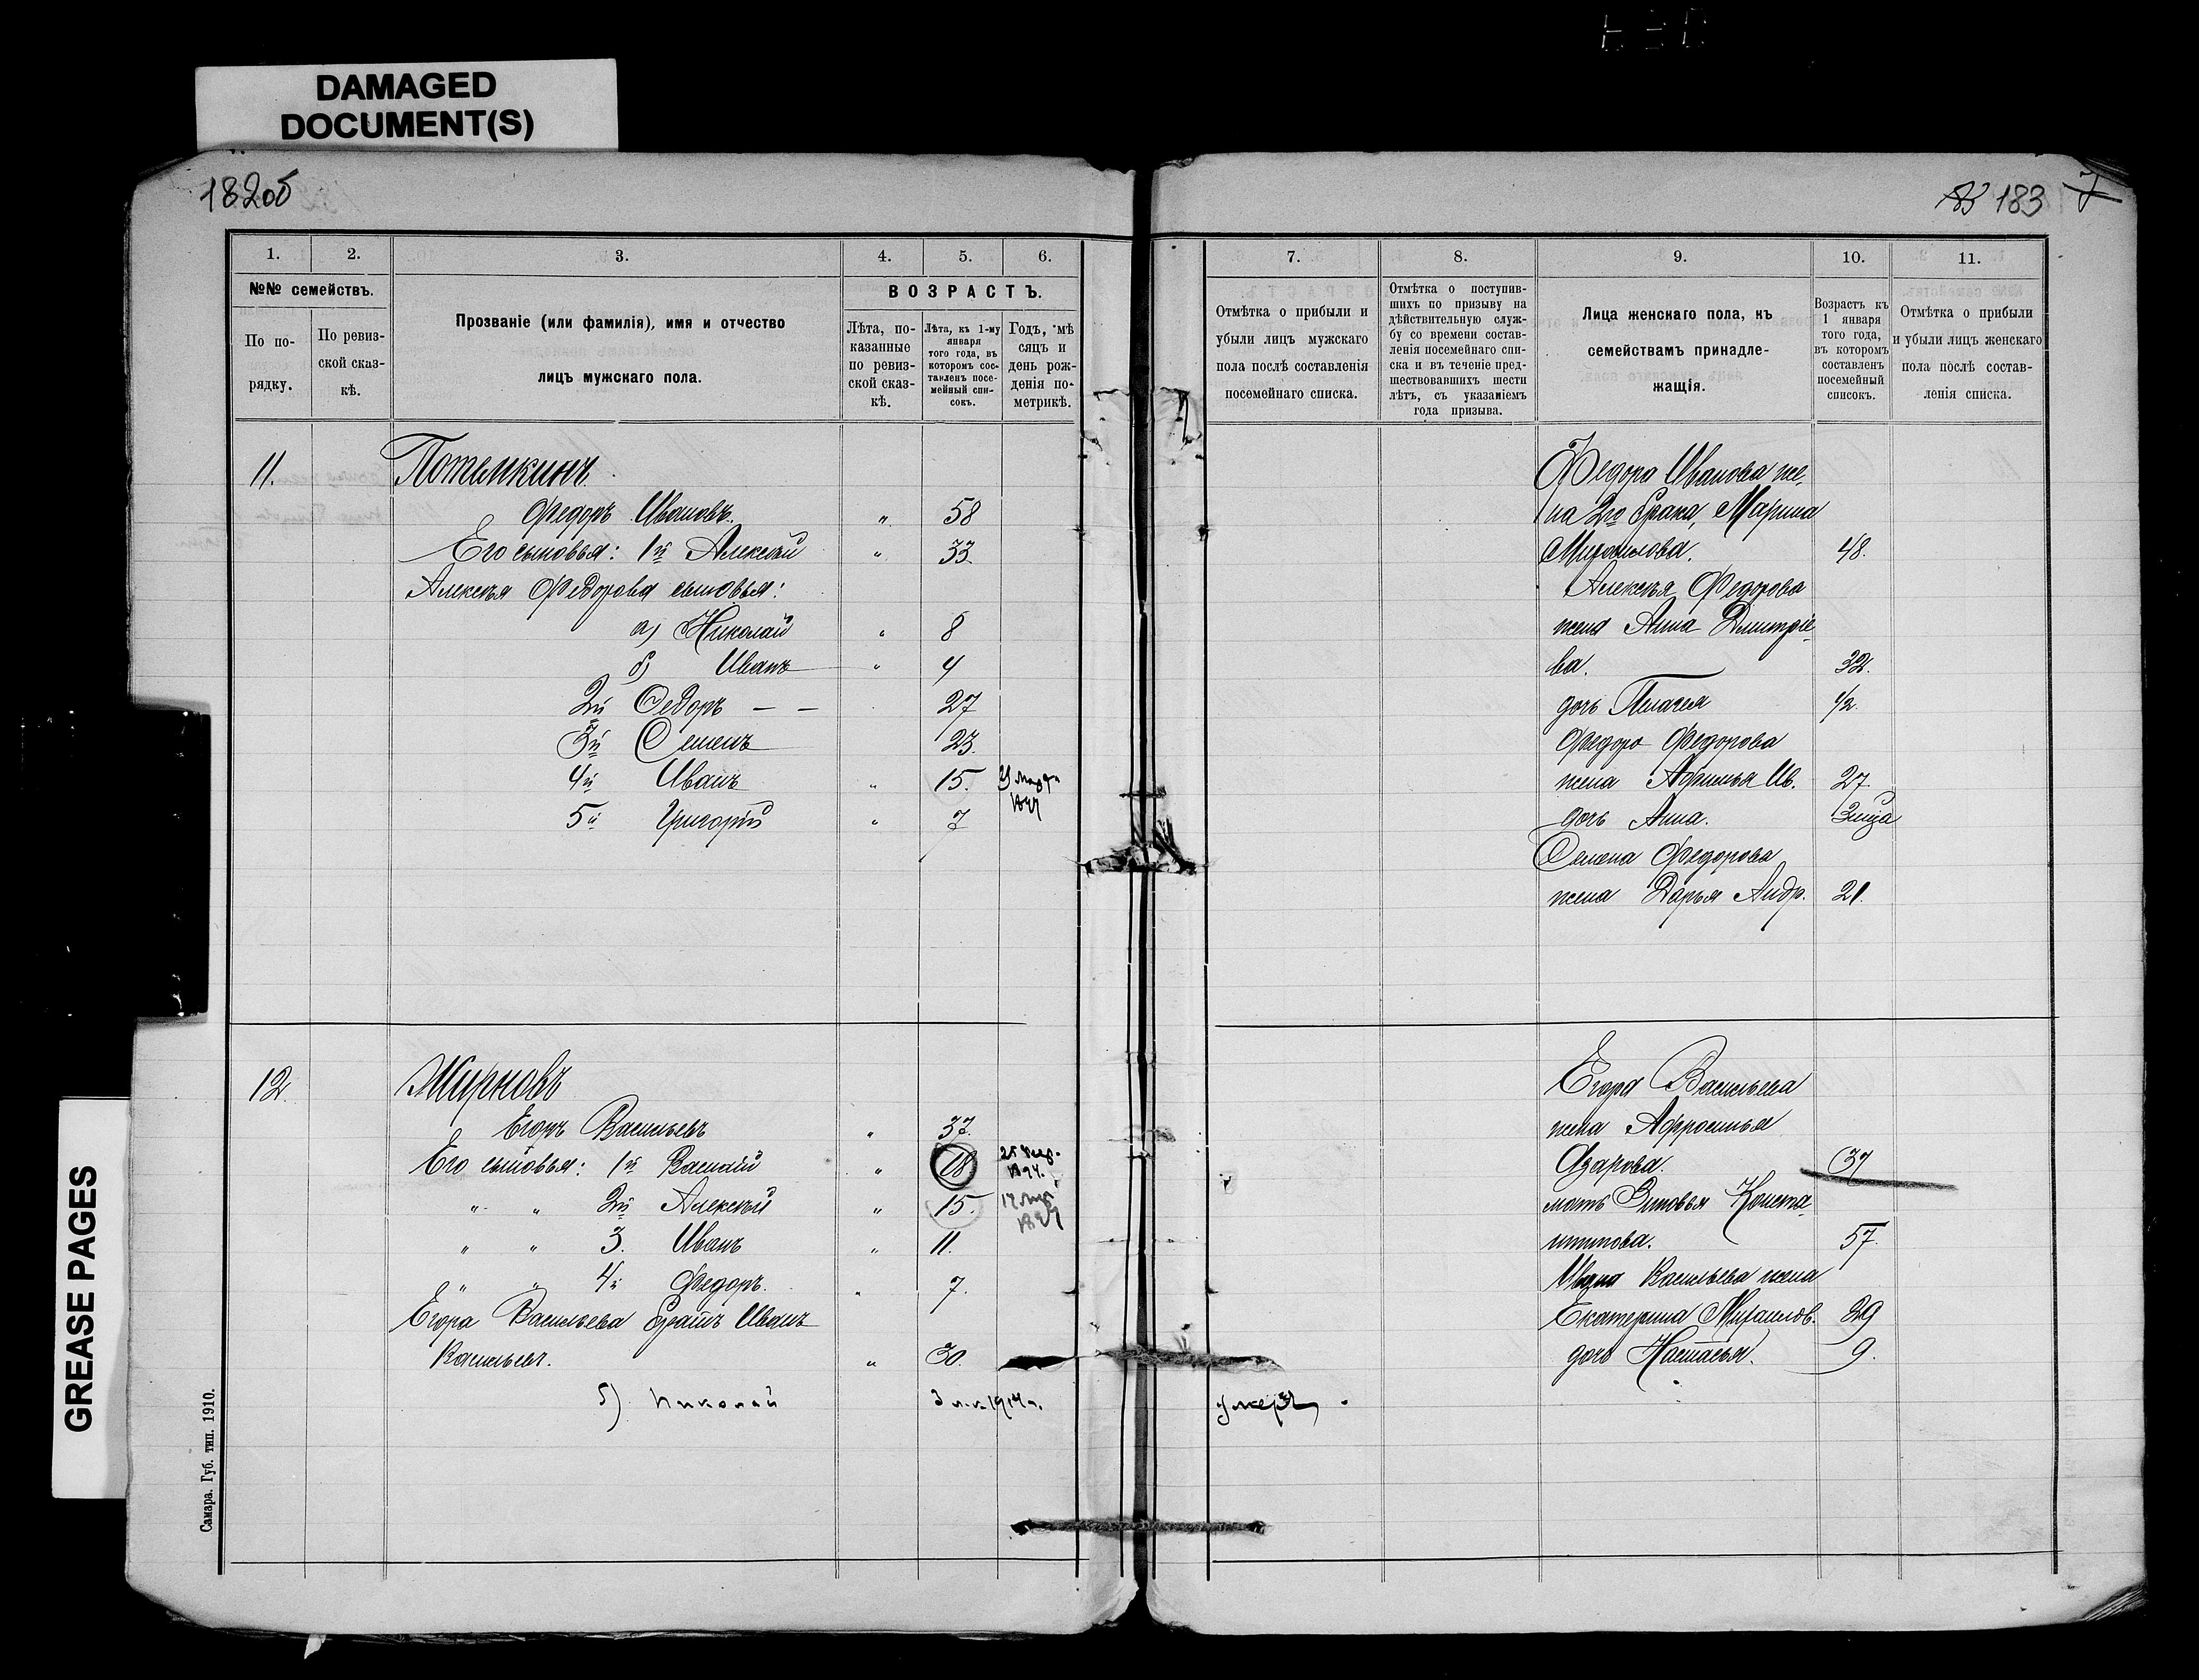 DAMAGED
DOCUMENT(S)
GREASE PAGES
182об
183
1.
2.
3.
4.
5.
6.
№№ семействъ.
По по-
рядку.
По ревиз-
ской сказ-
кѣ.
Прозваніе (или фамилія), имя и отчество
лицъ мужскаго пола.
ВОЗРАСТЪ.
Лѣта, по-
казанные
по ревиз-
ской сказ-
кѣ.
Лѣта, къ 1-му
января
того года, въ
которомъ сос-
тавленъ посе-
мейный спи-
сокъ.
Годъ, мѣ
сяцъ и
день рож-
денія по-
метрикѣ.
11.
Потемкинъ
Федоръ Ивановъ. " 58
Его сыновья: 1й Алексѣй " 33
Алексѣя Федорова сыновья:
а) Николай " 8
б) Иванъ " 4
2й Федоръ — — 27
3й Семенъ 23
4й Иванъ " 15.
5й Григорій " 7
12.
Жирновъ
Егоръ Васильевъ " 37.
Его сыновья: 1й Василій " 18
" " 2й Алексѣй " 15.
" " 3. Иванъ " 11.
" " 4й Федоръ. " 7.
Егора Васильева братъ Иванъ
Васильевъ. " 30.
5) Николай 1914г.
Самара. Губ. тип. 1910.
7.
8.
9.
10.
11.
Отмѣтка о прибыли и
убыли лицъ мужскаго
пола послѣ составленія
посемейнаго списка.
Отмѣтка о поступив-
шихъ по призыву на
дѣйствительную служ-
бу со времени состав-
ленія посемейнаго спи-
ска и въ теченіе пред-
шествовавшихъ шести
лѣтъ, съ указаніемъ
года призыва.
Лица женскаго пола, къ
семействамъ принадле-
жащія.
Возрастъ къ
1 января
того года,
въ которомъ
составленъ
посемейный
списокъ.
Отмѣтка о прибыли
и убыли лицъ женскаго
пола послѣ состав-
ленія списка.
Федора Иванова же-
на 2го брака, Марина
Михайлова. 48.
Алексѣя Федорова
жена Анна Дмитріе-
ва. 32.
дочь Пелагея 1/2.
Федора Федорова
жена Ив. 27.
дочь Анна.
Семена Федорова
жена Дарья Андр. 21.
Егора Васильева
жена Афросинья
Азарова. 37
мать Зиновья Конста-
нтинова. 57.
Ивана Васильева жена
Екатерина Михайлов. 29
дочь Настасья. 9.
умеръ